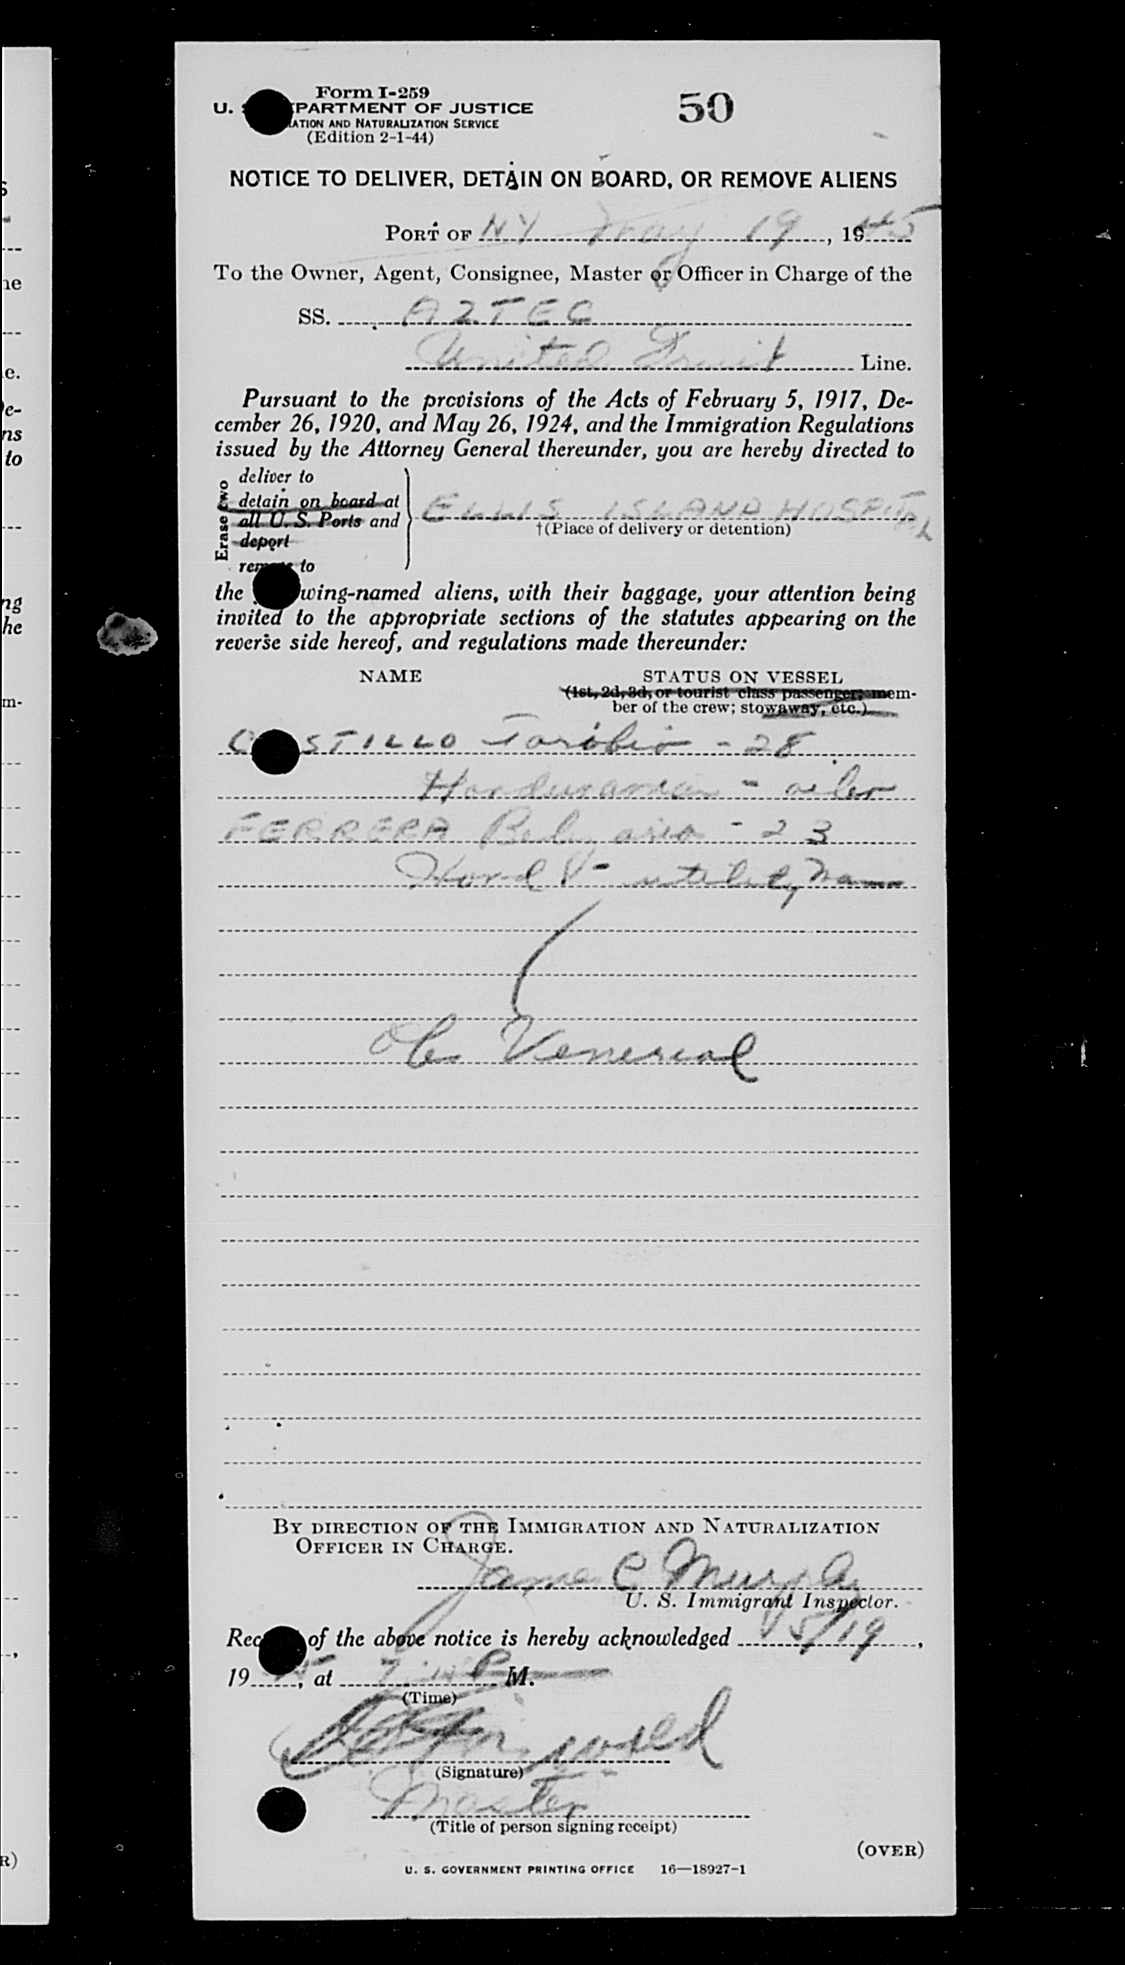 Form I-259
U. S. DEPARTMENT OF JUSTICE
IMMIGRATION AND NATURALIZATION SERVICE
(Edition 2-1-44)
50
NOTICE TO DELIVER, DETAIN ON BOARD, OR REMOVE ALIENS
PORT OF NY May 19, 1945
To the Owner, Agent, Consignee, Master or Officer in Charge of the
SS. AZTEC
United Fruit Line.
Pursuant to the provisions of the Acts of February 5, 1917, De-
cember 26, 1920, and May 26, 1924, and the Immigration Regulations
issued by the Attorney General thereunder, you are hereby directed to
Erase two
deliver to
detain on board at
all U. S. Ports and
deport
remove to
ELLIS ISLAND HOSPITAL
†(Place of delivery or detention)
the following-named aliens, with their baggage, your attention being
invited to the appropriate sections of the statutes appearing on the
reverse side hereof, and regulations made thereunder:
NAME STATUS ON VESSEL
(1st, 2d, 3d, or tourist class passenger; mem-
ber of the crew; stowaway, etc.)
CASTILLO Toribio - 28
Honduranean - oiler
FERRERA - 23
Hond - utility man
Venereal
BY DIRECTION OF THE IMMIGRATION AND NATURALIZATION
OFFICER IN CHARGE.
James C Murphy
U. S. Immigrant Inspector.
Receipt of the above notice is hereby acknowledged 5/19,
1945, at 7 P M.
(Time)
(Signature)
Master
(Title of person signing receipt)
(OVER)
U. S. GOVERNMENT PRINTING OFFICE 16—18927-1